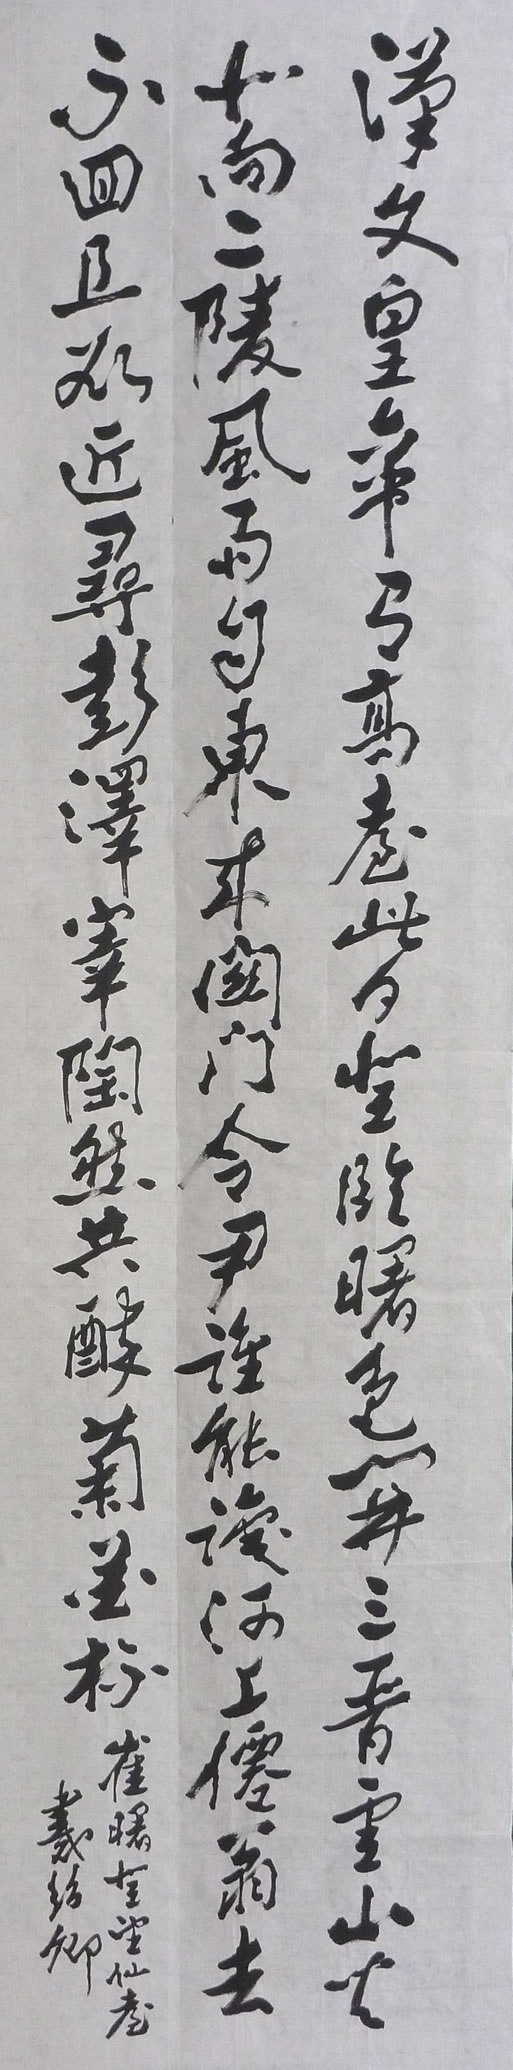 漢文皇帝有高臺此日登臨曙色開三晉雲山皆
北向二陵風雨自東來關門令尹誰能識河上僊翁去
不回且欲近尋彭澤宰陶然共醉菊花杯
崔曙登望仙臺
卿